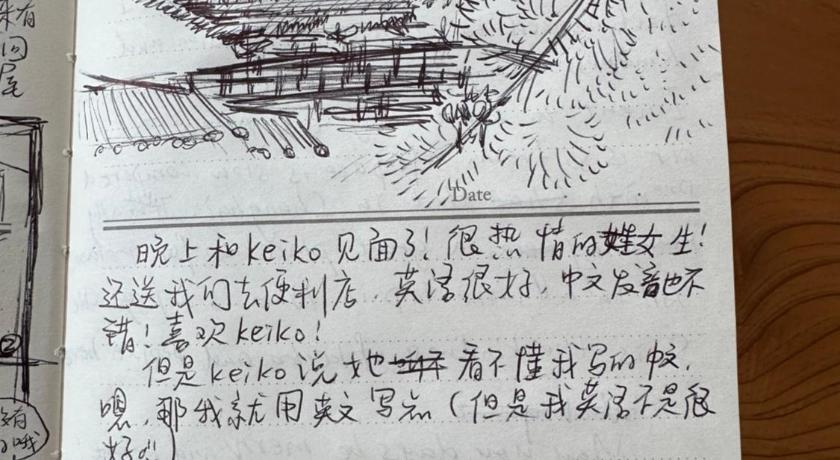 来有
回
尾
Date
晚上和keiko见面了！很热情的女生！
还送我们去便利店，英语很好，中文发音也不
错！喜欢keiko！
但是keiko说她看不懂我写的中文，
嗯，那我就用英文写点（但是我英语不是很
好！）
②
没有
哦